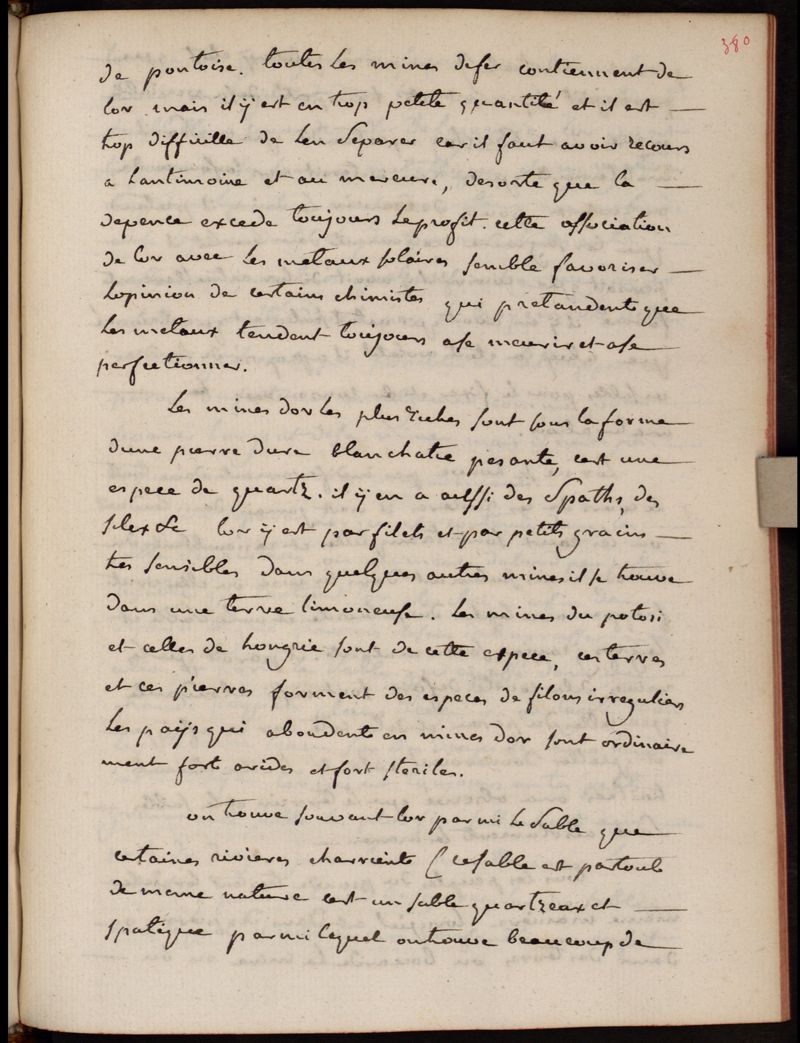 380
de pontoise. toutes les mines de fer contiennent de
lor mais il ÿ est en trop petite quantité et il est —
trop difficille de len Separer car il faut avoir recours
a Lantimoine et au mercure, desorte que la —
depence excede toujours Le profit. cette association
de lor avec Les metaux solaires semble favoriser —
Lopinion de certains chimistes qui pretandent que
Les metaux tendent toujours ase meurir et ase
perfectionner.
Les mines dor les plus riches sont sous la forme
dune pierre dure blanchatre pesante, cest une
espece de quartz. il ÿ en a aussi des Spaths, des
silex &c lor ÿ est par filets et par petits grains —
tres sensibles dans quelques autres mines il se trouve
dans une terre limoneuse. Les mines du potosi
et celles de hongrie sont de cette espece, ces terres
et ces pierres forment des especes de filons irreguliers
Les païjs qui abondent en mines dor sont ordinaire
ment fort arides et fort steriles.
on trouve souvant lor parmi Le Sable que
certaines rivieres charrient ( ce sable est partout
de meme nature cest un sable quartzeux et —
spatique parmi lequel on trouve beaucoup de